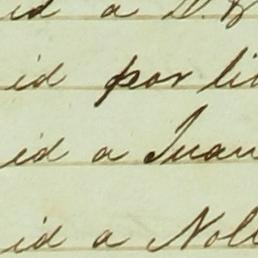 id a D.
id por li
id a Juan
id a Noll